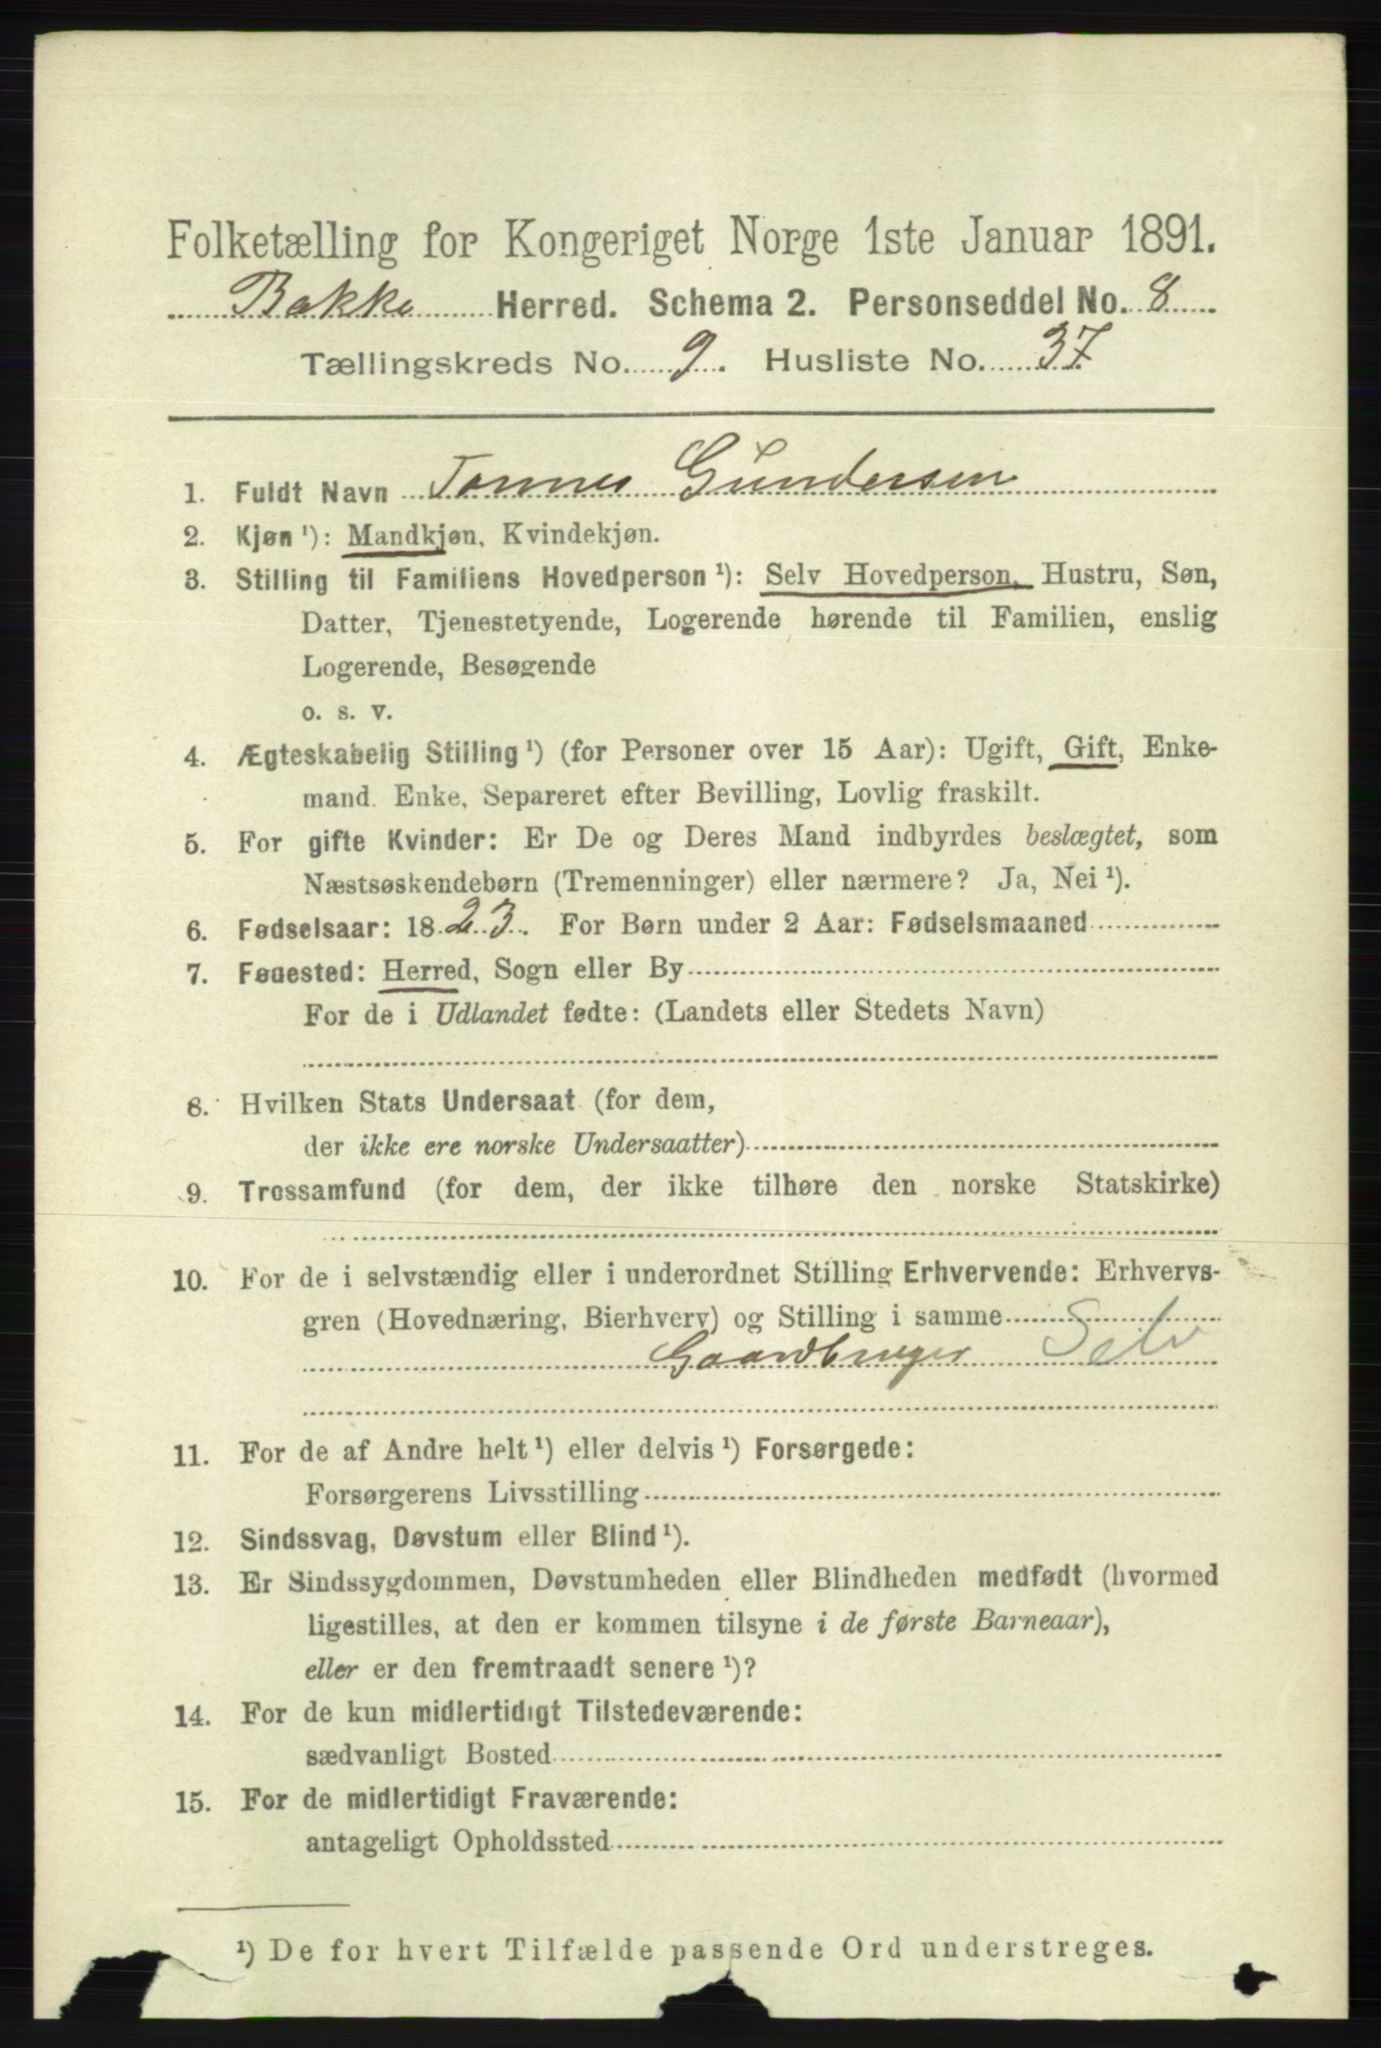 Folketælling for Kongeriget Norge 1ste Januar 1891.
Bakke Herred. Schema 2. Personseddel No. 8
Tællingskreds No. 9. Husliste No. 37
1. Fuldt Navn Tønnes Gundersen
2. Kjøn ¹): Mandkjøn, Kvindekjøn.
3. Stilling til Familiens Hovedperson ¹): Selv Hovedperson, Hustru, Søn,
Datter, Tjenestetyende, Logerende hørende til Familien, enslig
Logerende, Besøgende
o. s. v.
4. Ægteskabelig Stilling ¹) (for Personer over 15 Aar): Ugift, Gift, Enke-
mand, Enke, Separeret efter Bevilling, Lovlig fraskilt.
5. For gifte Kvinder: Er De og Deres Mand indbyrdes beslægtet, som
Næstsøskendebørn (Tremenninger) eller nærmere? Ja, Nei ¹).
6. Fødselsaar: 1823. For Børn under 2 Aar: Fødselsmaaned
7. Fødested: Herred, Sogn eller By
For de i Udlandet fødte: (Landets eller Stedets Navn)
8. Hvilken Stats Undersaat (for dem,
der ikke ere norske Undersaatter)
9. Trossamfund (for dem, der ikke tilhøre den norske Statskirke)
10. For de i selvstændig eller i underordnet Stilling Erhvervende: Erhvervs-
gren (Hovednæring, Bierhverv) og Stilling i samme
Gaardbruger Selv
11. For de af Andre helt ¹) eller delvis ¹) Forsørgede:
Forsørgerens Livsstilling
12. Sindssvag, Døvstum eller Blind ¹).
13. Er Sindssygdommen, Døvstumheden eller Blindheden medfødt (hvormed
ligestilles, at den er kommen tilsyne i de første Barneaar),
eller er den fremtraadt senere ¹)?
14. For de kun midlertidigt Tilstedeværende:
sædvanligt Bosted
15. For de midlertidigt Fraværende:
antageligt Opholdssted
¹) De for hvert Tilfælde passende Ord understreges.